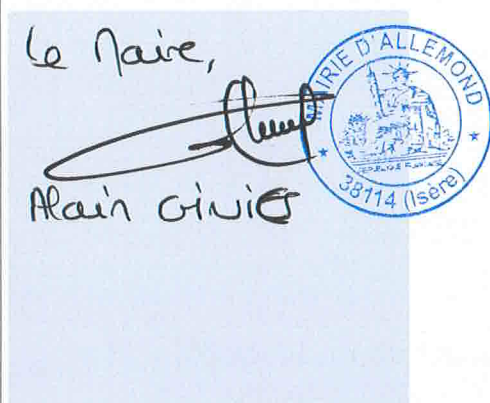 Le Maire,
Alain GINIES
MAIRIE D'ALLEMOND
38114 (Isère)